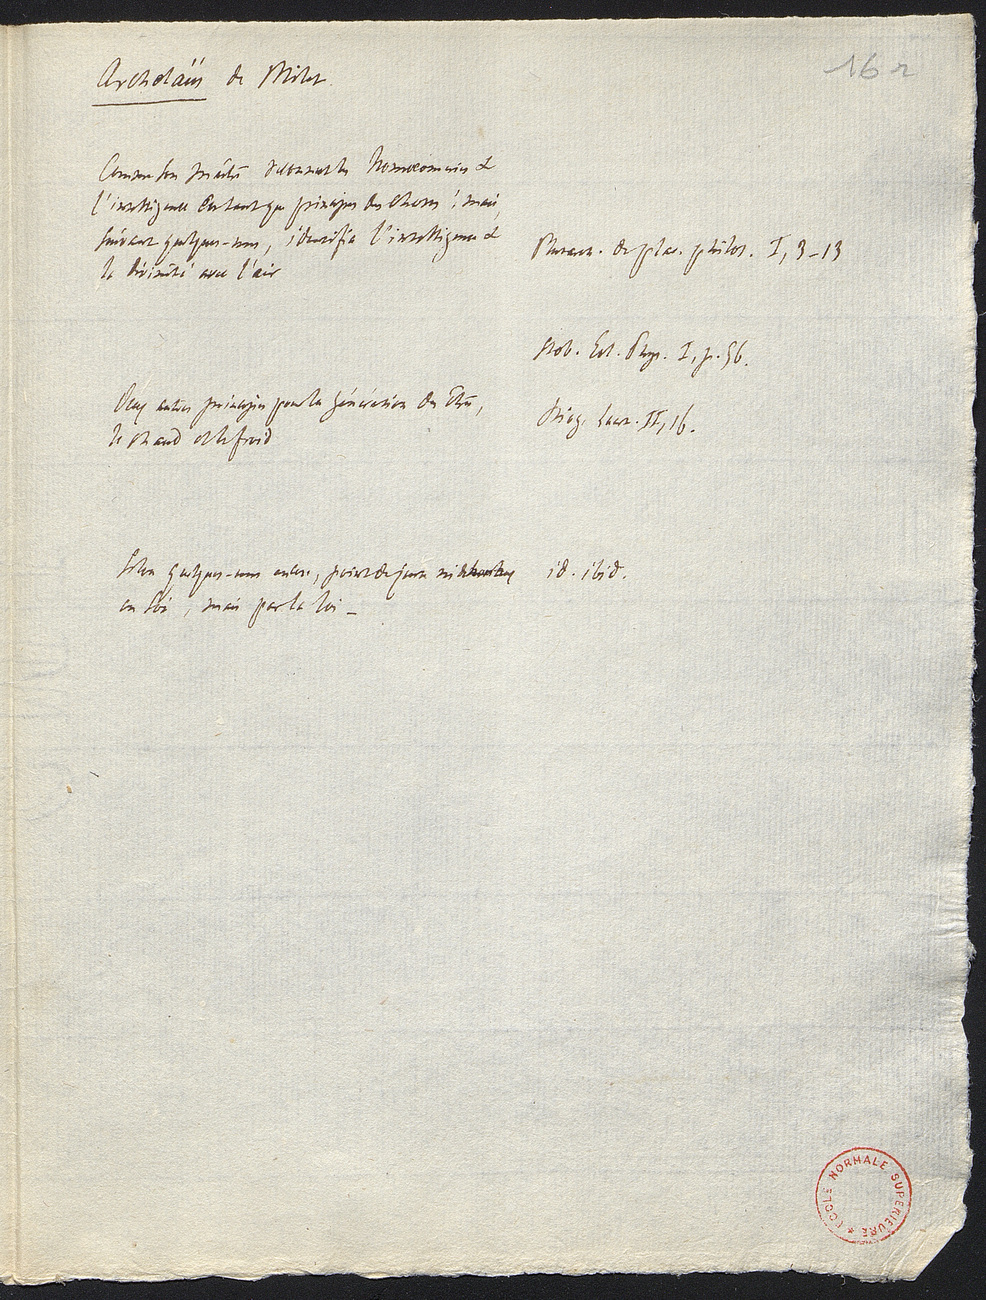 16 r
Archelaüs de Milet.
Comme son maître, les Homoeomeries &
l'intelligence en tant que principes des choses ; mais,
suivant quelques-uns, identifia l'intelligence &
la divinité avec l'air
Plutarch. de plac. philos. I, 3-13
Stob. Ecl. Phys. I, p. 56.
Deux autres principes pour la génération des Êtres,
le chaud et le froid
Diog. Laert. II, 16.
Selon quelques-uns enfin, point de juste ni
en soi, mais par la loi _
id. ibid.
ECOLE NORMALE SUPERIEURE